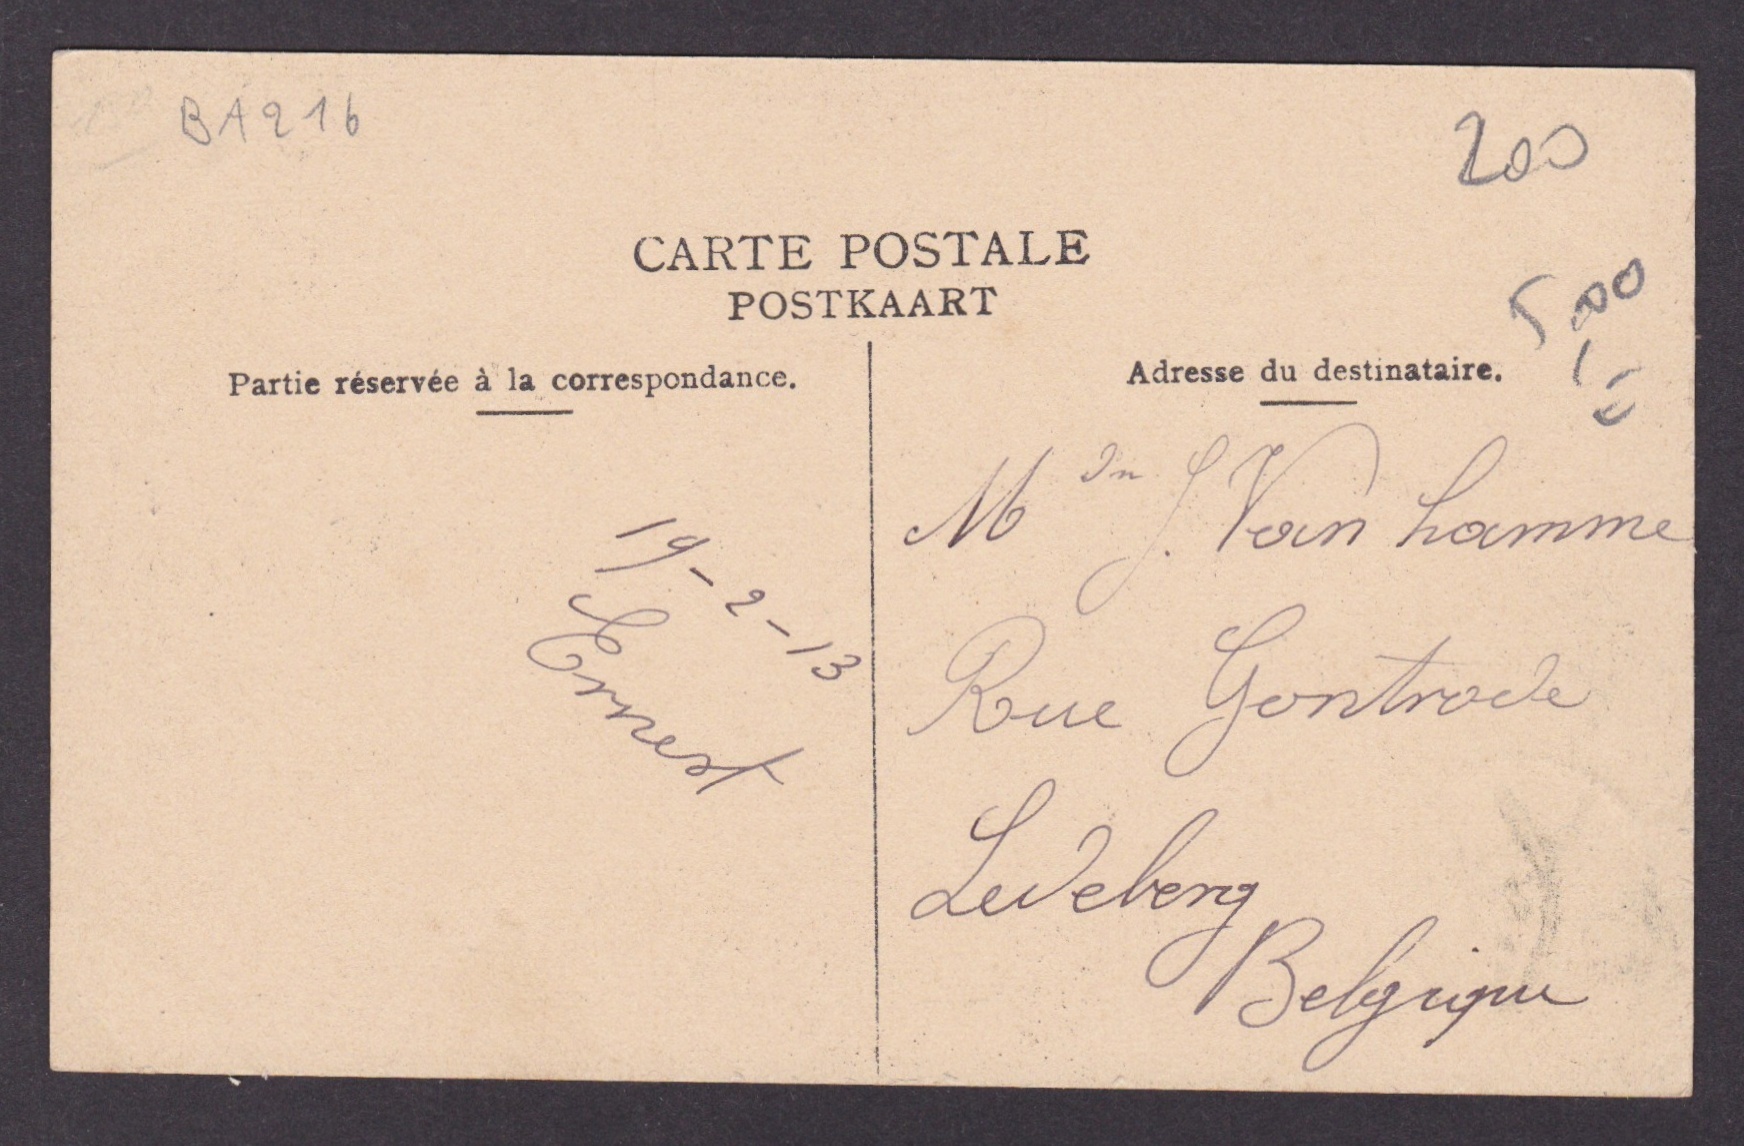 BA216
200
CARTE POSTALE
POSTKAART
500
Partie réservée à la correspondance.
Adresse du destinataire.
19-2-13
Ernest
J. Van hamme
Rue Gontrode
Ledeberg
Belgique